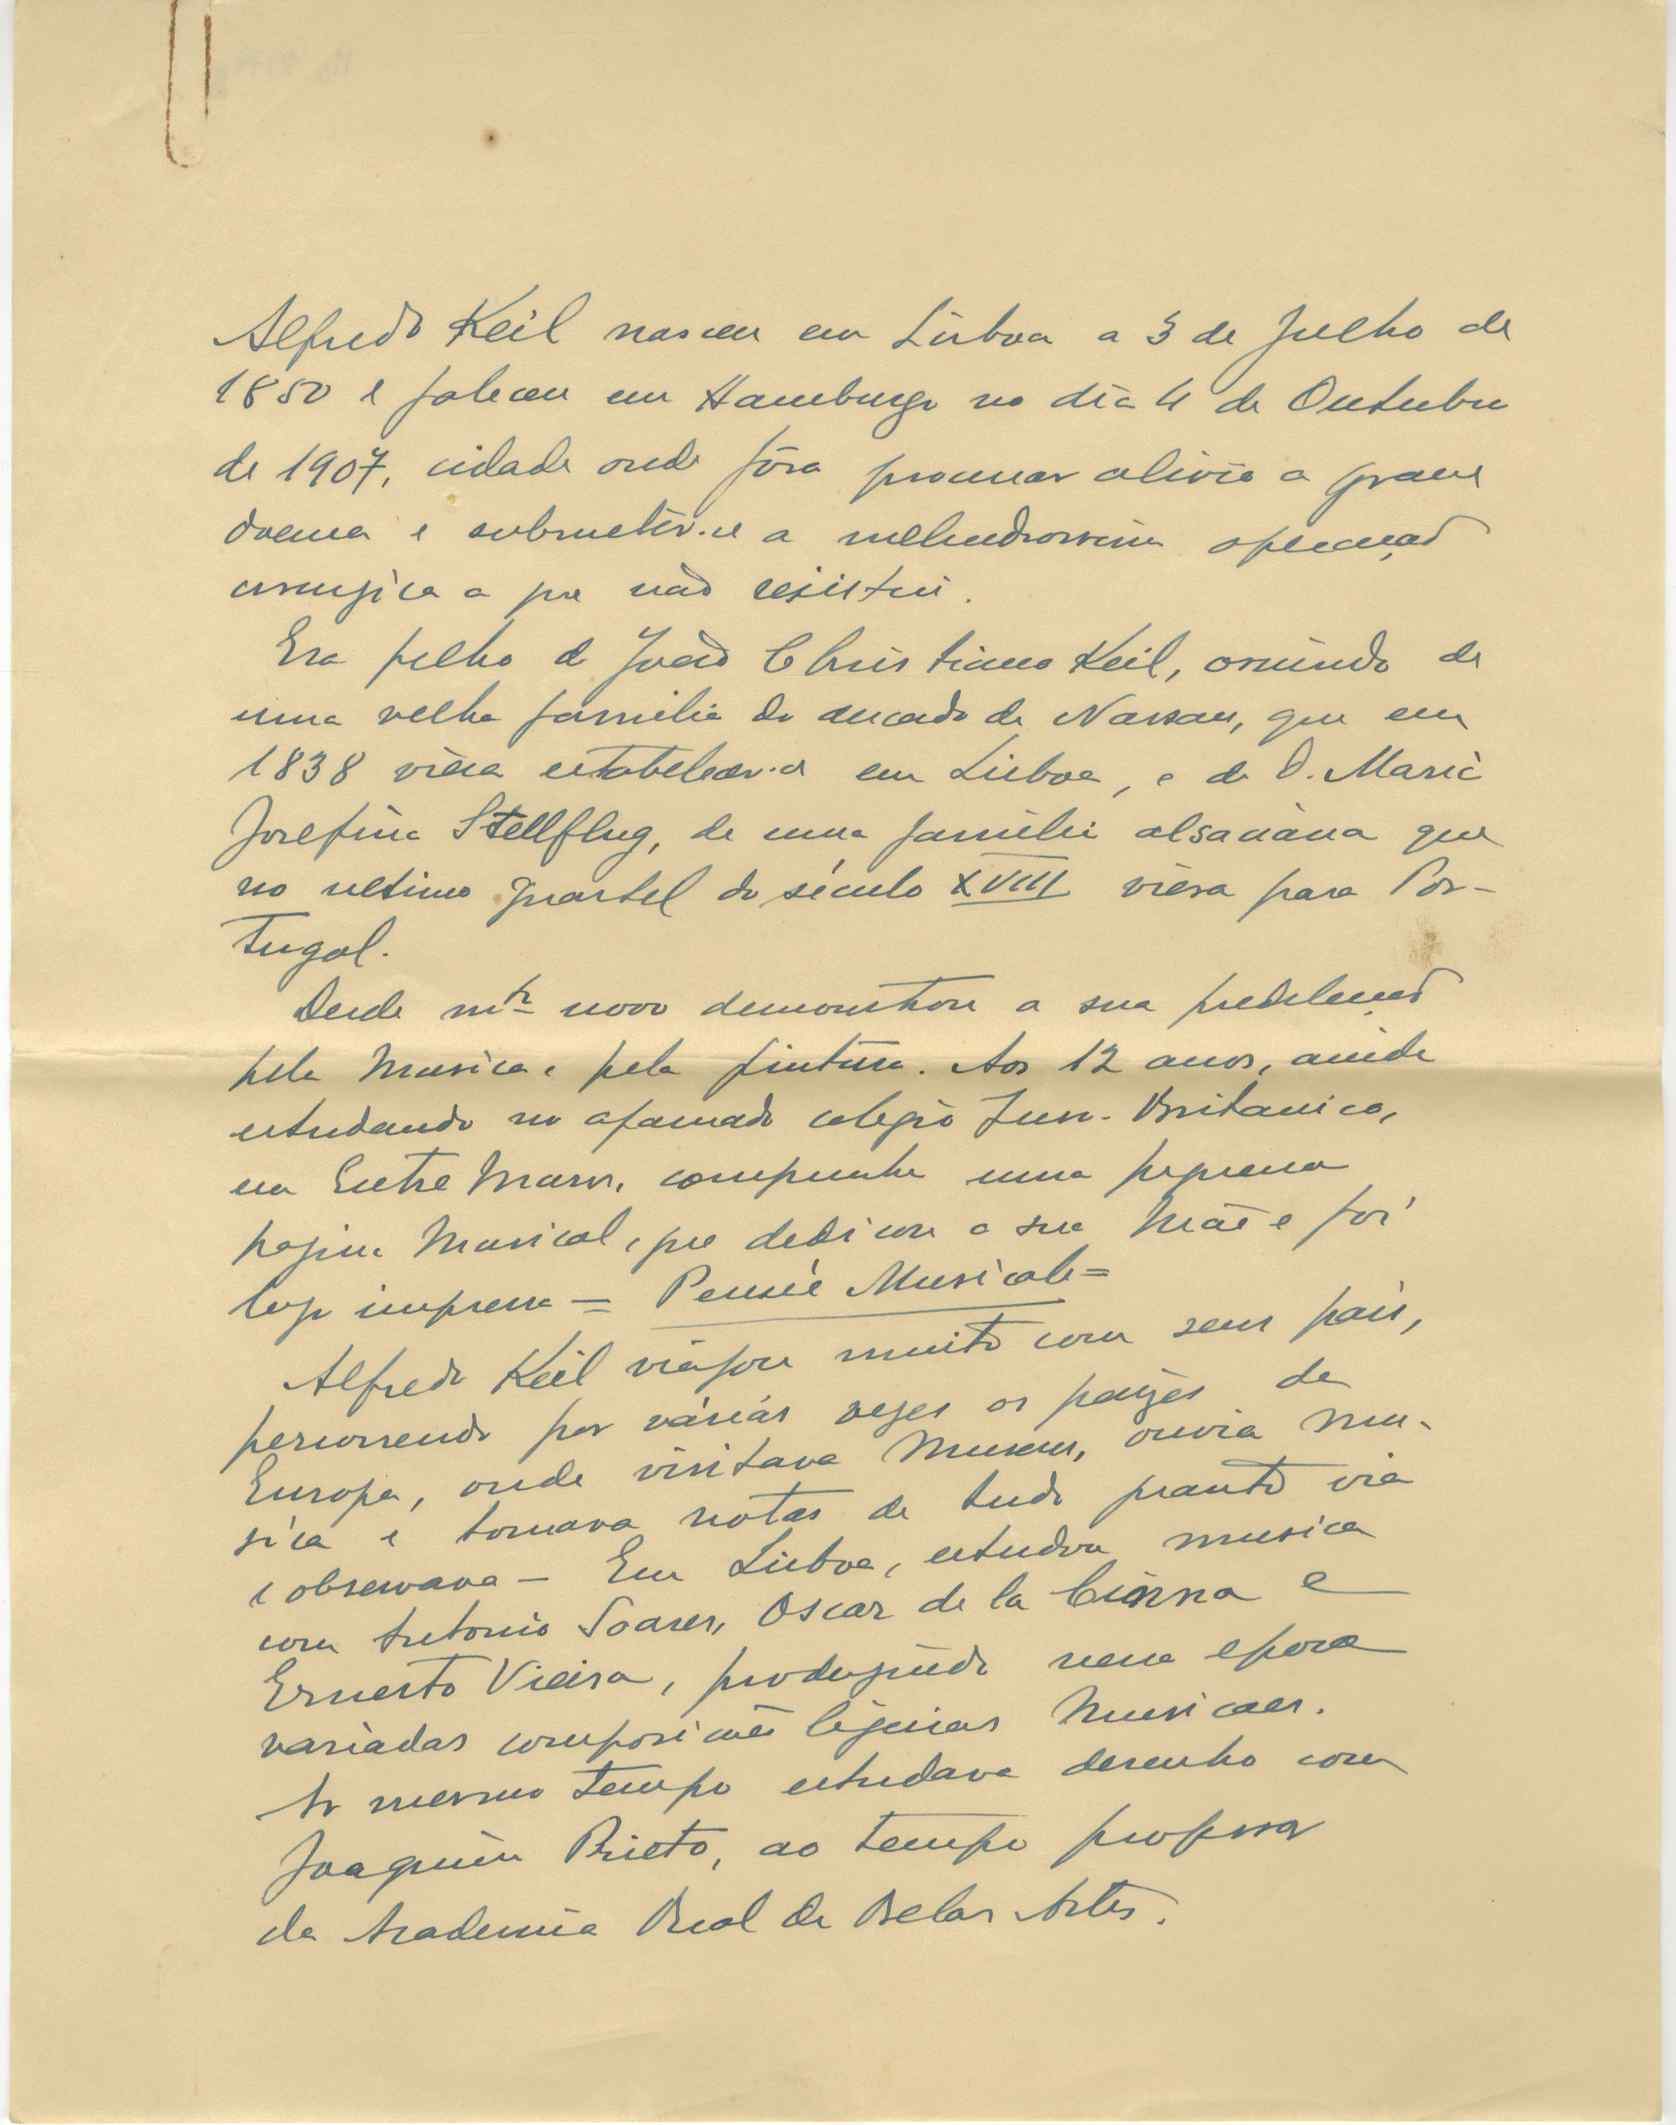 Alfredo Keil nasceu em Lisboa a 3 de Julho de
1850 e faleceu em Hamburgo no dia 4 de Outubro
de 1907, cidade onde fôra procurar alivio a grave
doença e submeter-se a melindrosissima operação
cirurgica a que não resistiu.
Era filho de João Christiano Keil, oriundo de
uma velha familia do ducado de Nassau, que em
1838 viera estabelecer-se em Lisboa, e de D. Maria
Josefina Stellflug, de uma familia alsaciana que
no ultimo quartel do século XVIII viera para Por-
tugal.
Desde mto novo demonstrou a sua predileção
pela Musica e pela pintura. Aos 12 anos, ainda
estudando no afamado colegio Britanico,
em Entre Muros, compunha uma pequena
pagina Musical, que dedicou a sua Mãe e foi
logo impressa = Pensée Musicale =
Alfredo Keil viajou muito com seus pais,
percorrendo por várias vezes os paizes da
Europa, onde visitava Museus, ouvia mu-
sica e tomava notas de tudo quanto via
e observava - Em Lisboa, estudou musica
com Antonio Soares, Oscar de la Cinna e
Ernesto Vieira, produzindo nessa epoca
variadas composições ligeiras Musicaes.
Ao mesmo tempo estudava desenho com
Joaquim Prieto, ao tempo professor
da Academia Real de Belas Artes.